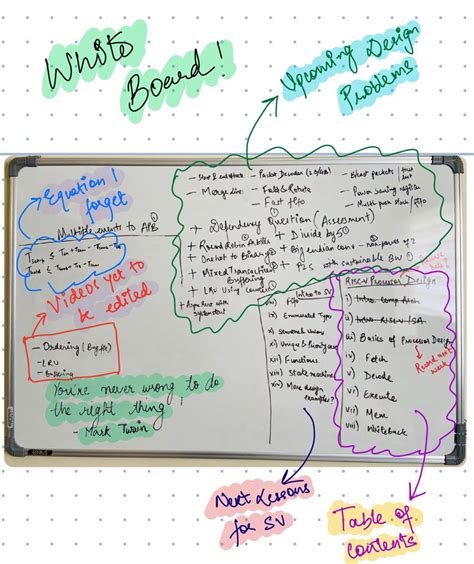 White
Board!
Upcoming Design
Problems
Equation I
forget
Multiple events to APB
- Packet Decoder (2 cycles)
- Merge
- Fold & Rotate
- Fast fifo
+ Dependency Question (Assessment)
+ Round Robin Arbiter
+ Divide by 5
+ Onehot to Binary
+ Big endian cons - non-power of 2
+ Mixed Transaction
Buffering
+ P2S with sustainable BW
+ LRU Using Counters
+ Async Reset with
Videos yet to
be edited
- Ordering (Buffer)
- LRU
- Buffering
You're never wrong to do
the right thing!
- Mark Twain
Intro to SV
Fifo
ix) Enumerated Type
x) Structural Union
xi) Unique & Priority case
xii) Functions
xiii) State machine
xiv) More design
examples?
RISC-V Processor Design
i) Intro Comp Arch
ii) Intro RISCV ISA
iii) Basics of Processor Design
Record next
week
iv) Fetch
v) Decode
vi) Execute
vii) Mem
viii) Writeback
Next Lessons
for SV
Table of
Contents